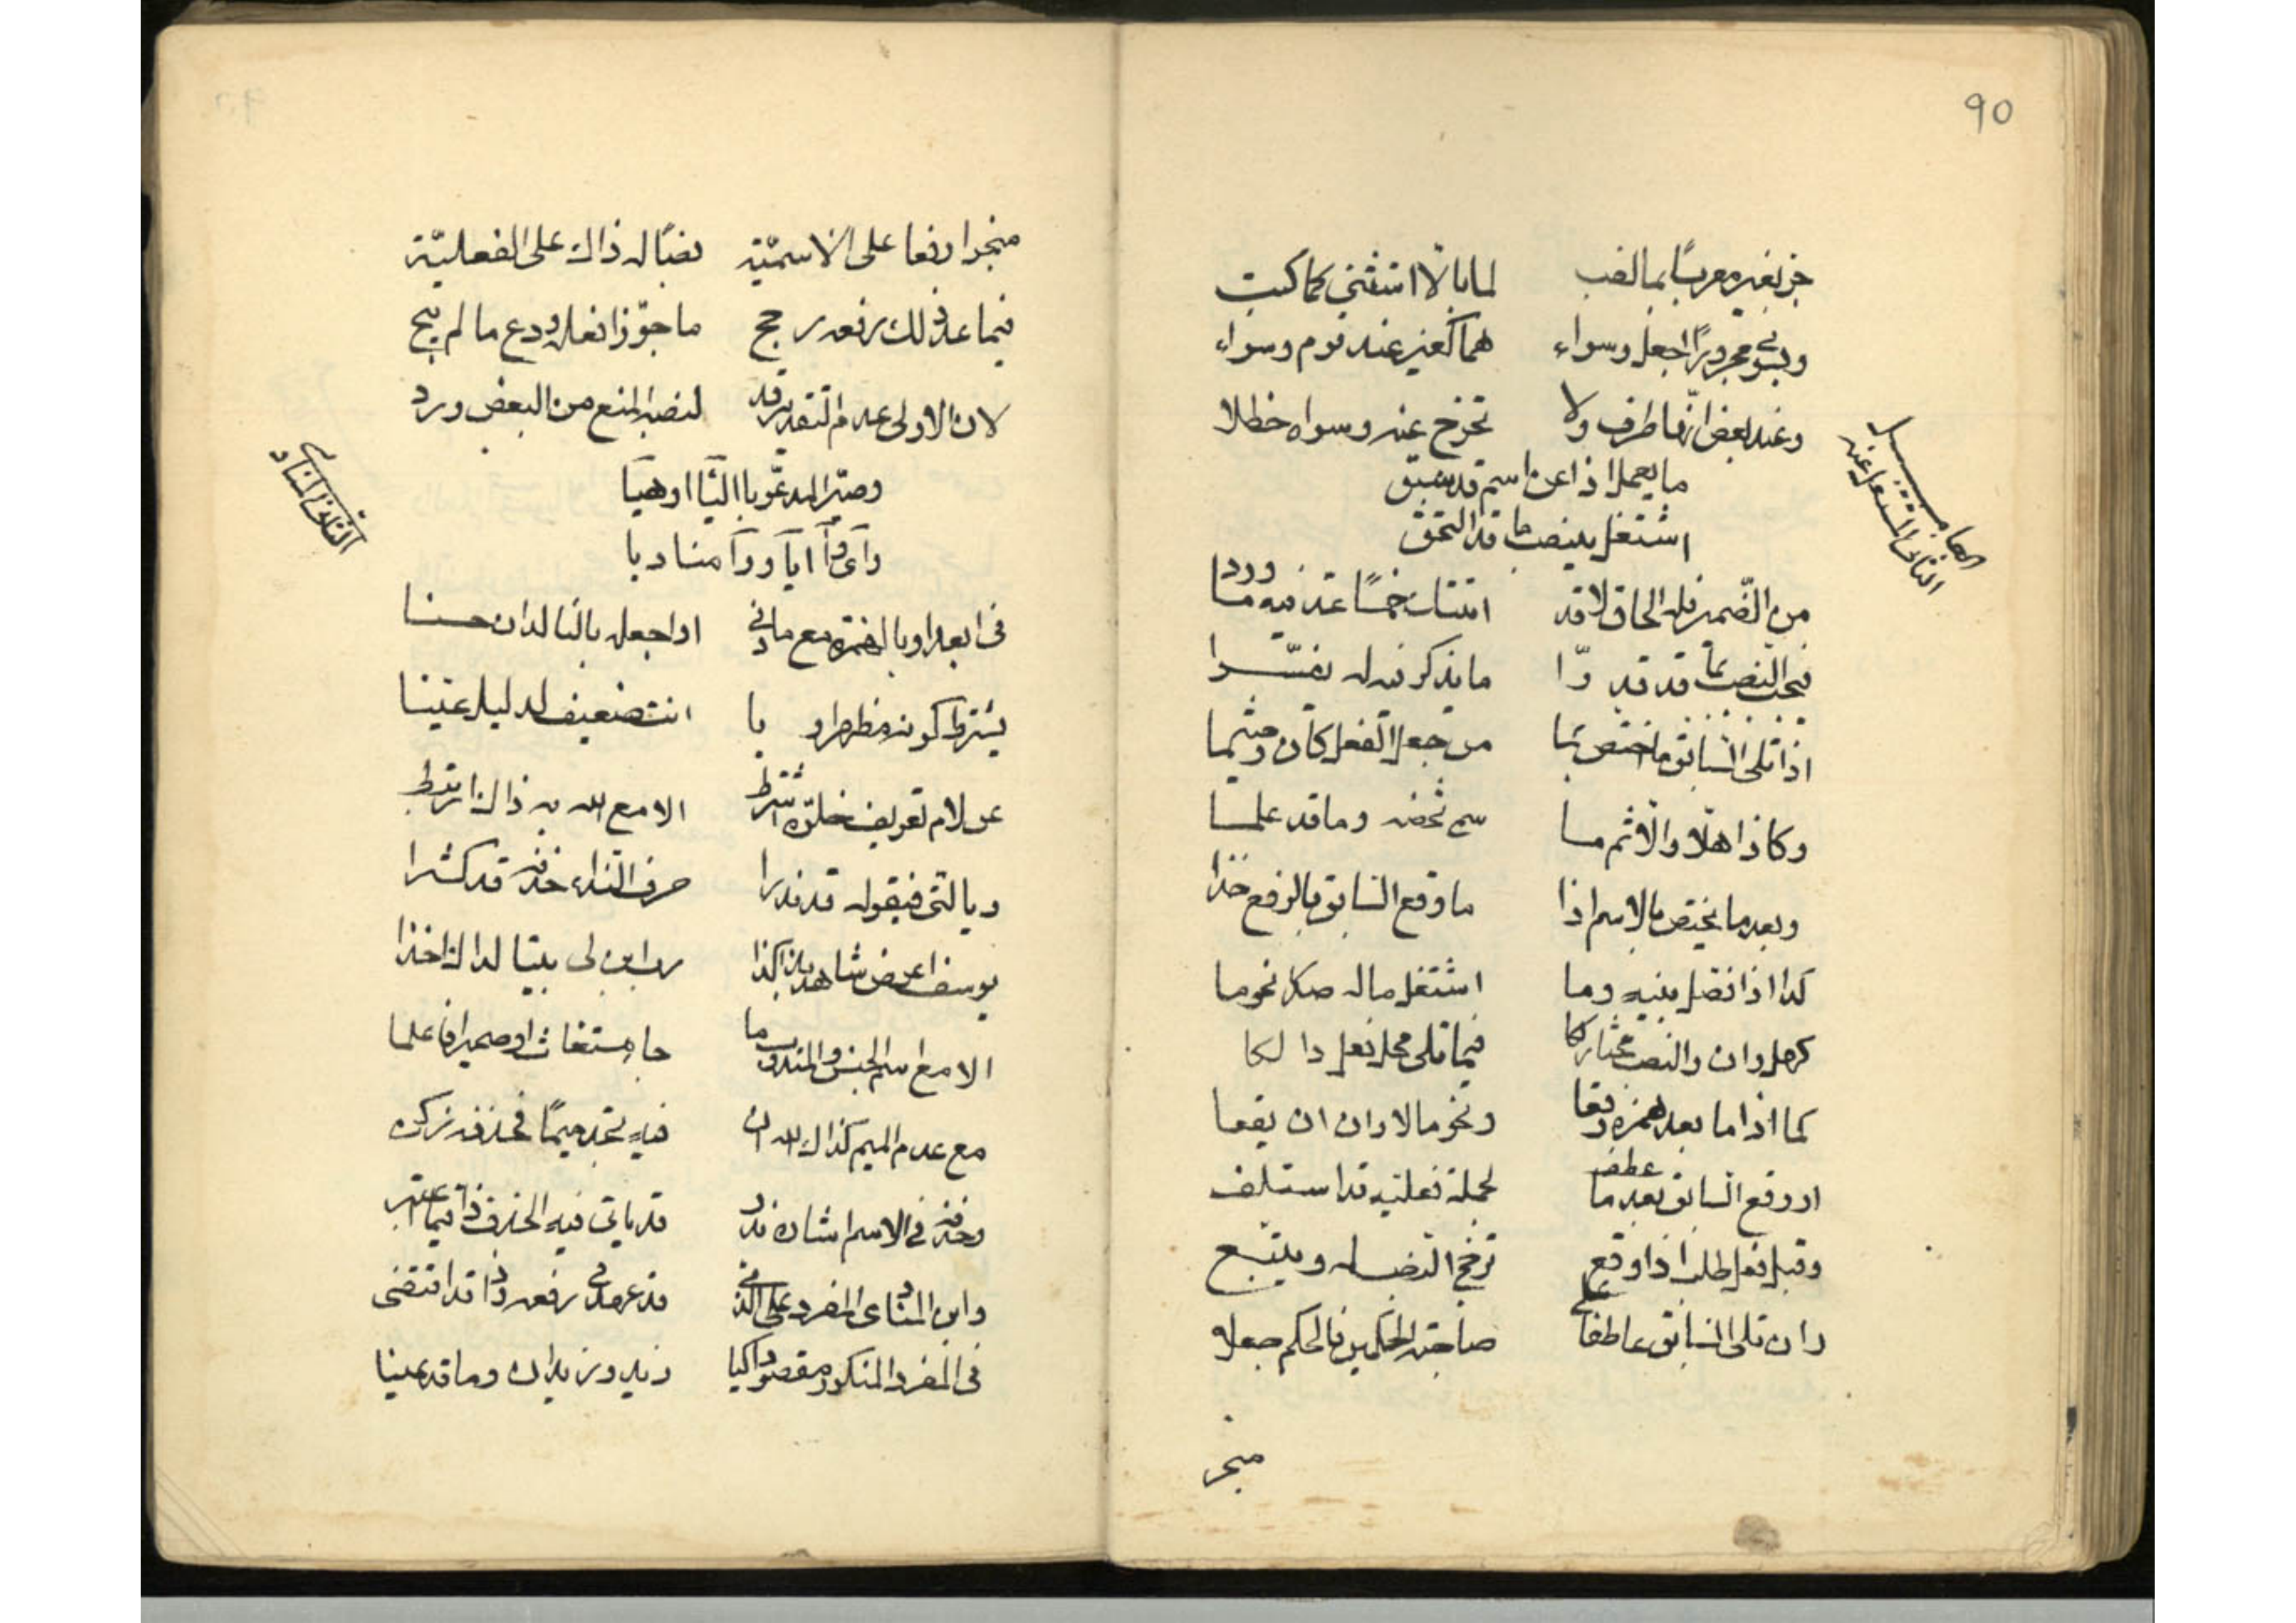 90
جر بغير معربًا بما لقب لما بالا استثني كما كتب
وبسوى مجرورًا اجعل وسواء هما كغير عند قوم وسواء
وعند بعض انها ظرف ولا تخرج عنه وسواه خطلا
ما يعمل اذا عن اسم قد سبق
اشتغل بنصب ما قد التحق
من الضمير فله الحاق لا قد اثبتت خمسًا عد فيه ما وردا
فيجب النصب بما قد قدرا ما يذكر فيه له يفسرا
اذا تلى السابق ما اختص بما من جعل الفعل كان وحيثما
وكاذا هلا والا ثم ما سم تحضه وما قد علما
وبعد ما يختص بالاسم اذا ما وقع السابق بالرفع خذا
كذا اذا فصل بينه وما اشتغل ماله صدر نحو ما
كهل وان والنصب مختار كما فيما تلى محل فعل دا لكا
كما اذا ما بعد همزه وقعا ونحو ما لا وان ان يقعا
او وقع السابق بعد ما عطف لجملة فعلية قد استلف
وقبل فعل طلب اذا وقع ترجح النصب له ويتبع
وان تلى السابق عاطفا على صاحبة الحكمين فالحكم جعلا
منجر
الثانى المشتغل عنه
منجرا رفعا على الاسمية نصبًا له ذاك على الفعلية
فيما عدا ذلك رفعه رجح ما جوزا فعل ودع ما لم يبح
لان الاولى عدم التقدير قد لنصبه المنع من البعض ورد
وصير المدعو باليا او هيا
وآى وآ ايا ووا مناديا
فى ابعد او بالهمزة مع ما دنى او اجعل بالنا لدان حسنا
يشترط كونه مظهرا و يا انت ضعيف لدليل عينا
عن لام تعريف خلوه اشترط الا مع الله به ذاك ارتبط
ويا التى فيقوله قد ندرا حرف النداء حذفه قد كثرا
يوسف اعرض شاهد بذا كذا رب ابن لى بيتا لذاك اخذا
الا مع اسم الجنس والمندوب ما جا مستغاث او ضمير فاعلما
مع عدم الميم كذاك الله ان فيه تجد ميمًا فحذفه زكن
وحذفه فى الاسم اشاره ندر قد ياتى فيه الحذف ذا فيما اعتبر
وابن المنادى المفرد على الذى قد عرف فى رفعه وذا قد اقتضى
فى المفرد المنكور مقصودا كيا زيد وزيدان وما قد عينا
الثالث المناد